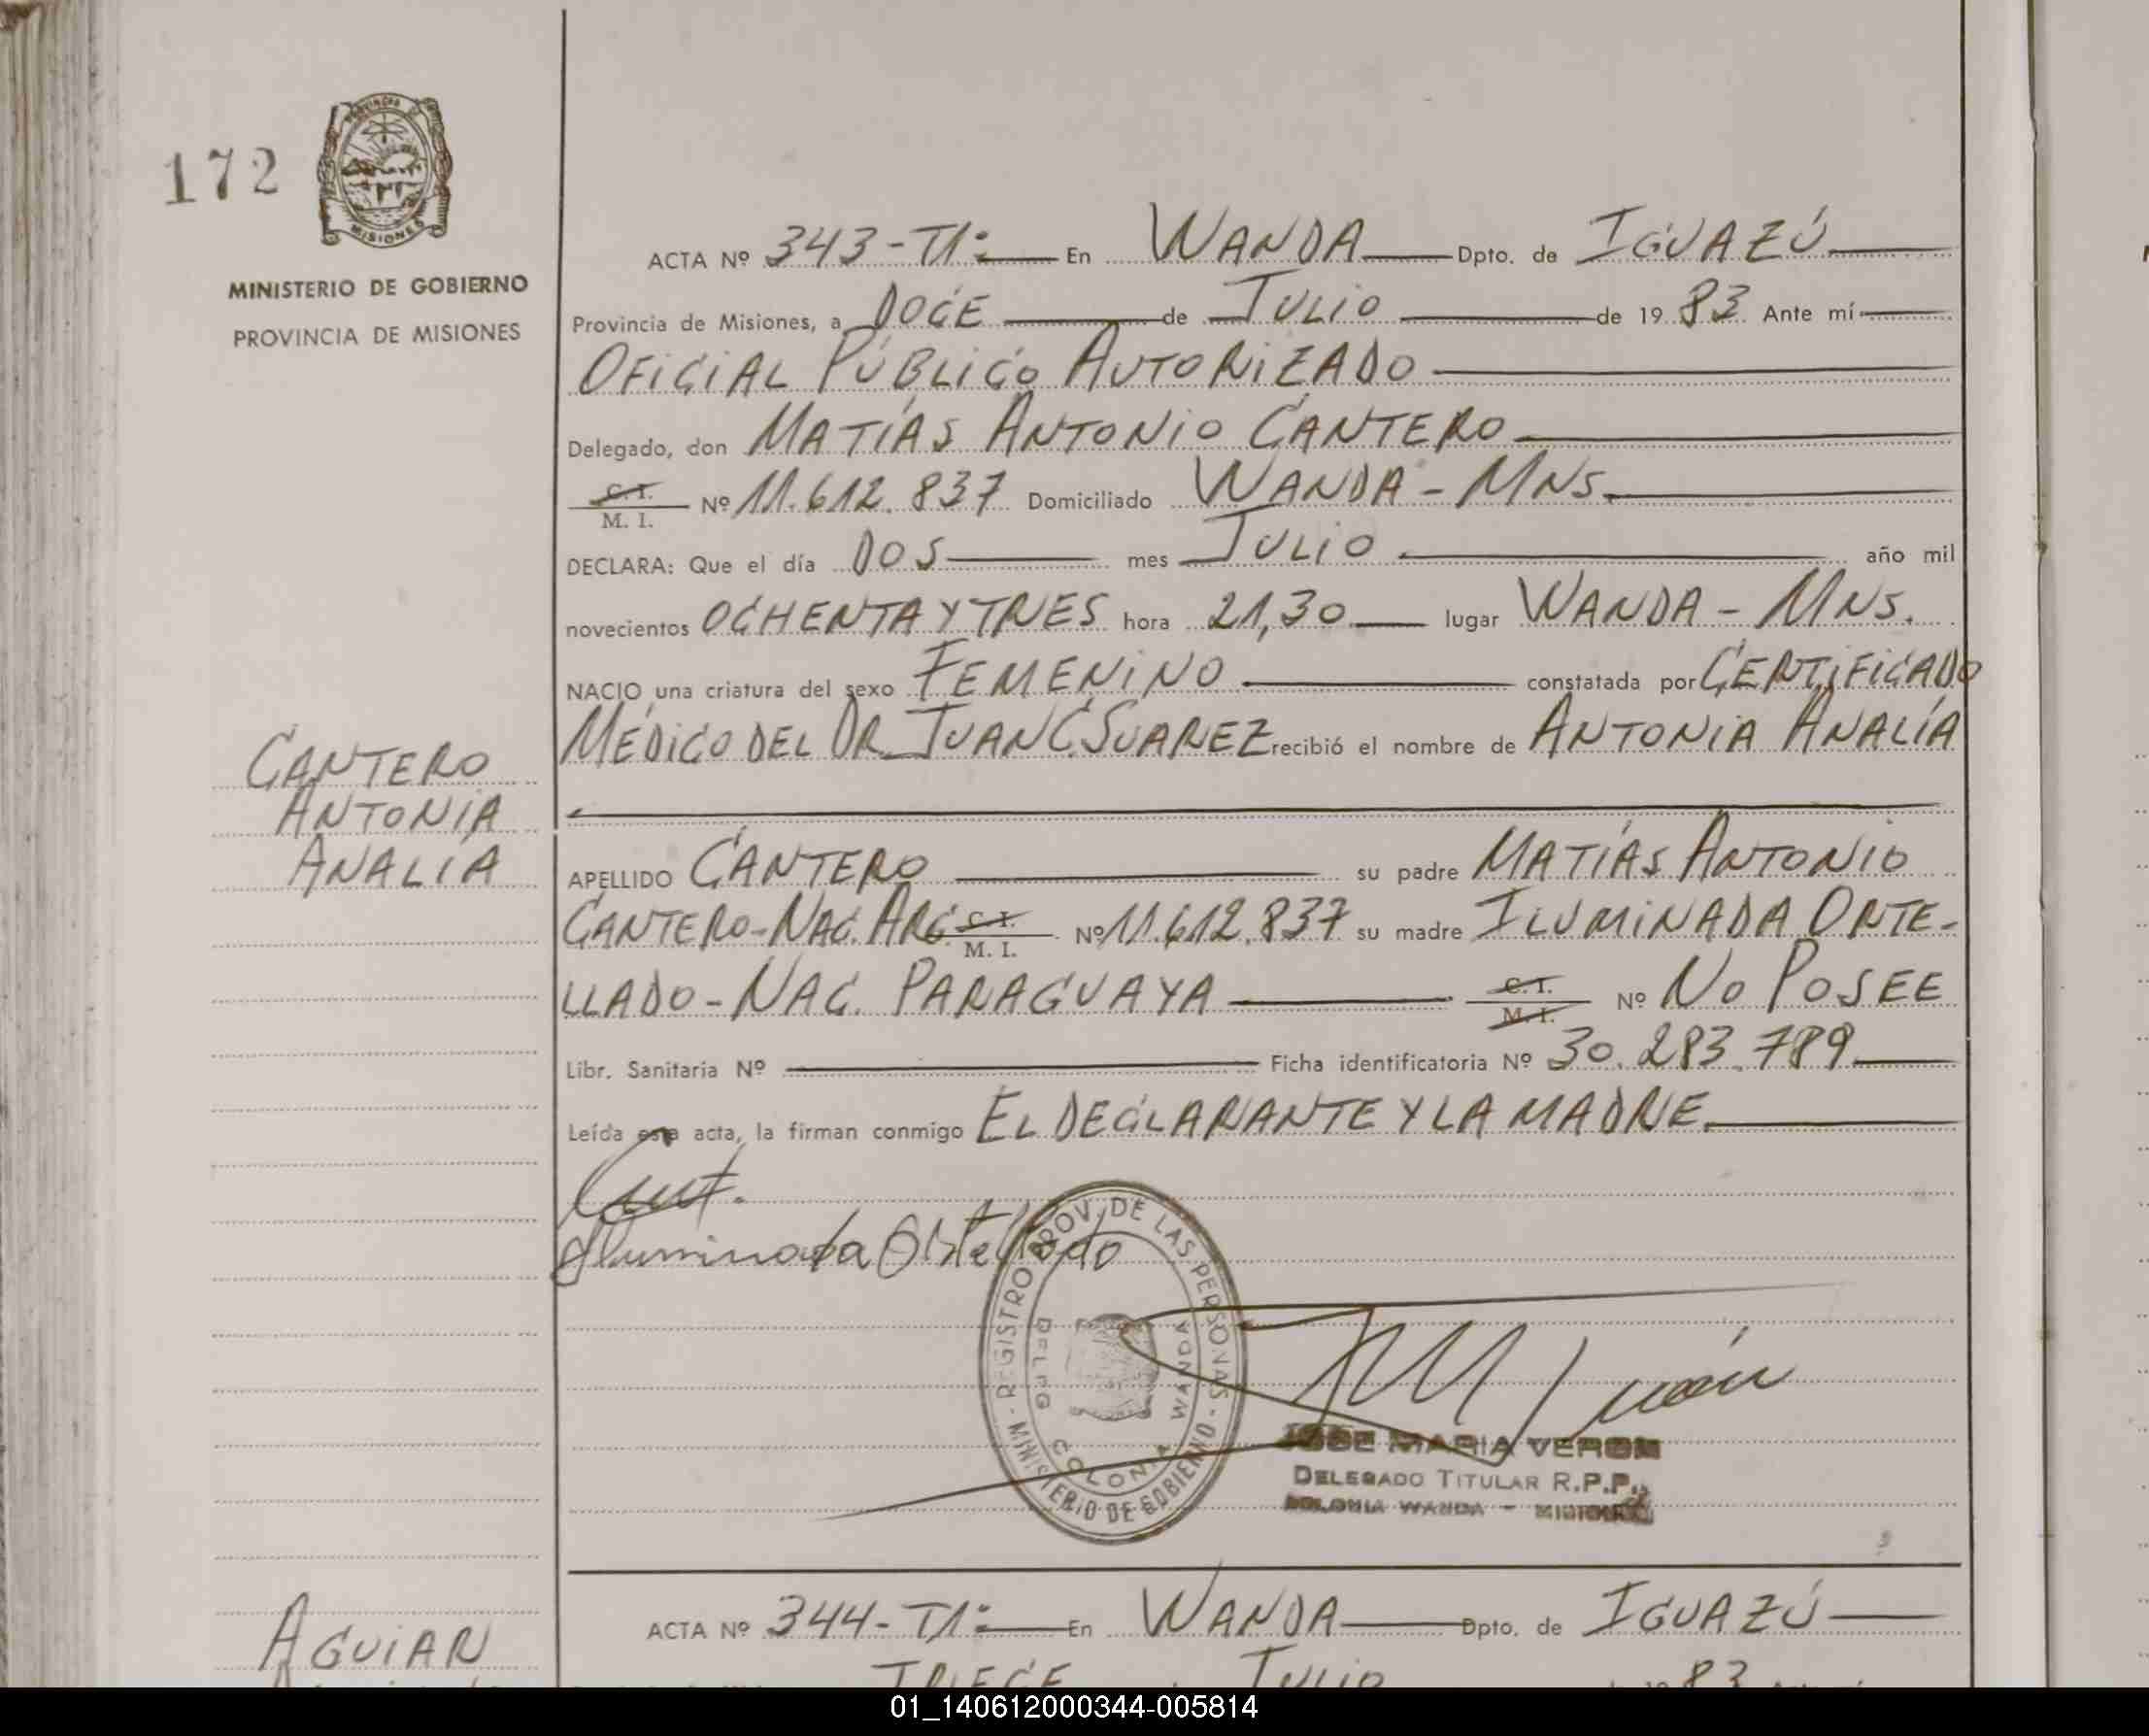 172
PROVINCIA DE
MISIONES
MINISTERIO DE GOBIERNO
PROVINCIA DE MISIONES
ACTA Nº 343-T1: En WANDA Dpto. de IGUAZÚ
Provincia de Misiones, a DOCE de JULIO de 1983 Ante mí
OFICIAL PÚBLICO AUTORIZADO
Delegado, don MATÍAS ANTONIO CANTERO
C. I.
M. I. Nº 11.612.837 Domiciliado WANDA - MNS.
DECLARA: Que el día DOS mes JULIO año mil
novecientos OCHENTA Y TRES hora 21,30 lugar WANDA - MNS.
NACIO una criatura del sexo FEMENINO constatada por CERTIFICADO
MÉDICO DEL DR. JUAN C. SUAREZ recibió el nombre de ANTONIA ANALÍA
CANTERO
ANTONIA
ANALÍA
APELLIDO CANTERO su padre MATÍAS ANTONIO
CANTERO-NAC. ARG. C. I.
M. I. Nº 11.612.837 su madre ILUMINADA ORTE-
LLADO - NAC. PARAGUAYA C. I.
M. I. Nº NO POSEE
Libr. Sanitaria Nº Ficha identificatoria Nº 30.283.789
Leída esta acta, la firman conmigo EL DECLARANTE Y LA MADRE.
Cant.
Iluminada Ortellado
REGISTRO PROV. DE LAS PERSONAS - MINISTERIO DE GOBIERNO -
DELEG COLONIA WANDA
JOSE MARIA VERON
DELEGADO TITULAR R.P.P.
COLONIA WANDA - MISIONES
AGUIAR
ACTA Nº 344-T1: En WANDA Dpto. de IGUAZÚ
TRECE JULIO 1983
01_140612000344-005814